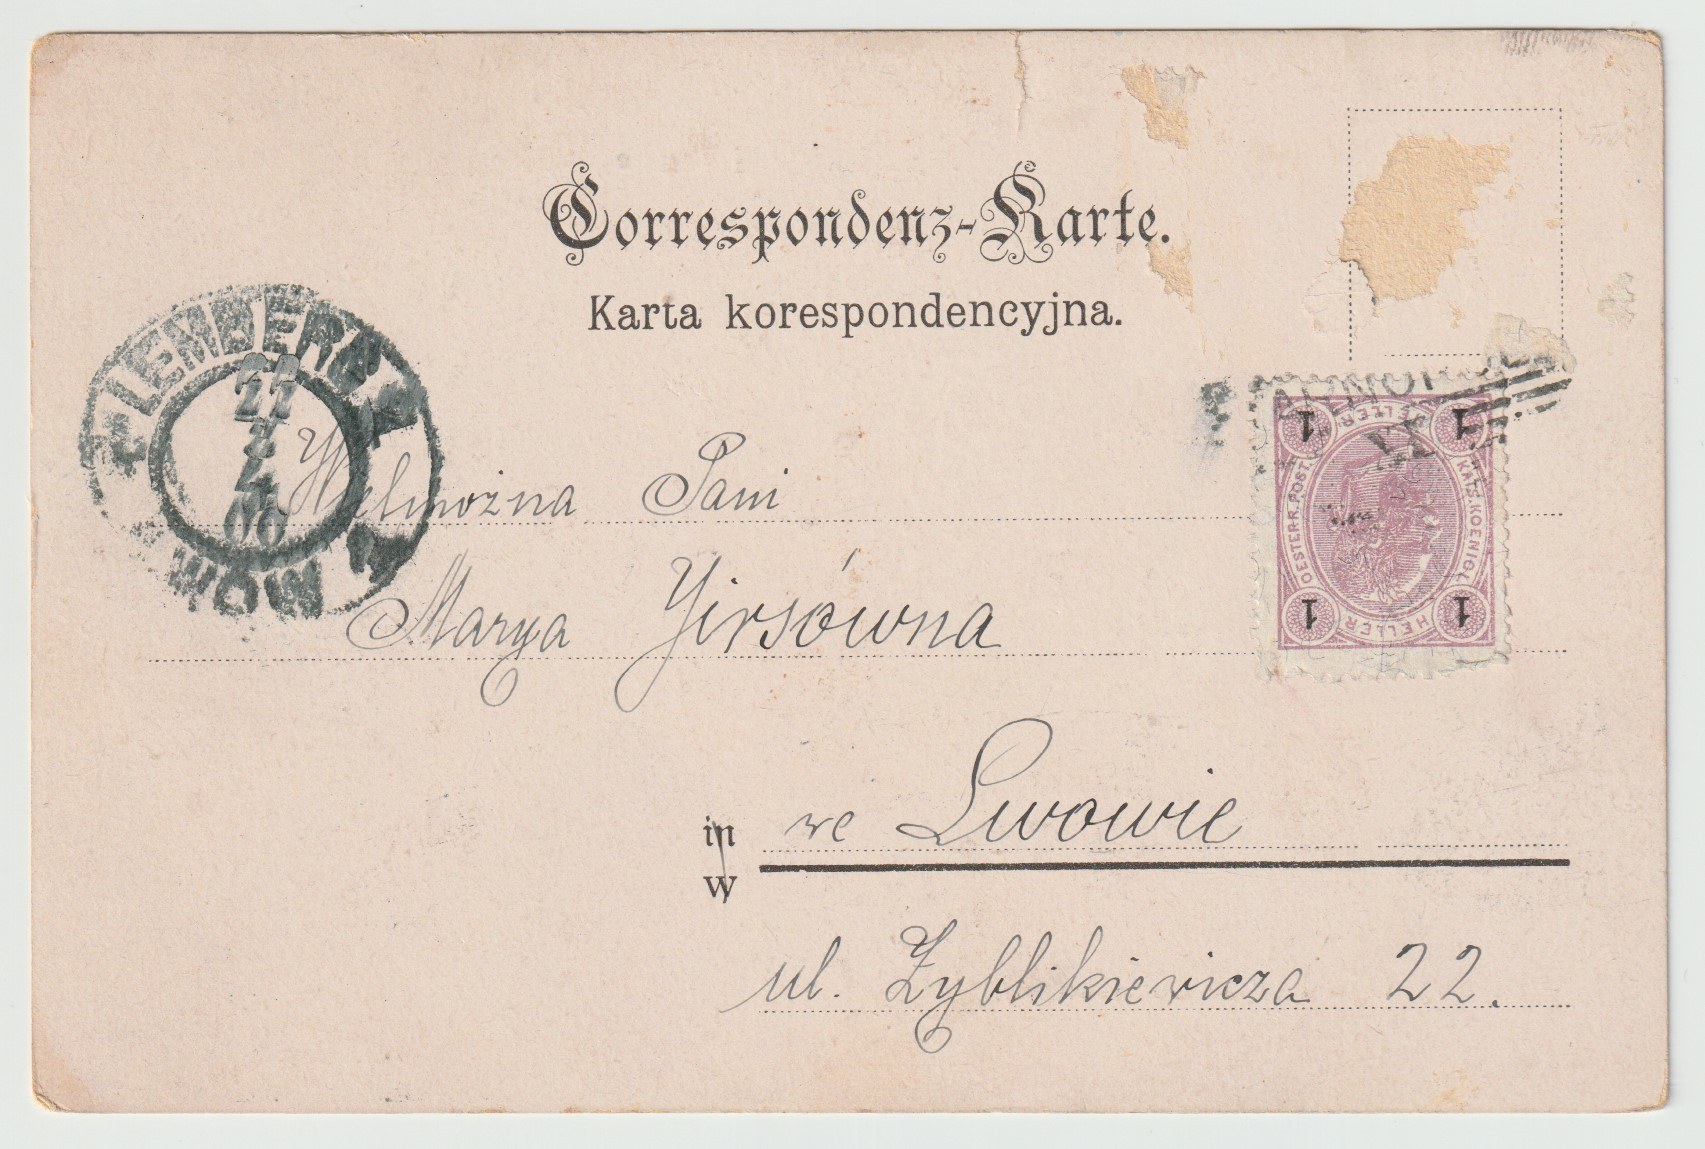 Correspondenz-Karte.
Karta korespondencyjna.
LEMBERG
LWÓW
Wielmożna Pani
Marya Jirsówna
in we Lwowie
W
ul. Zyblikiewicza 22.
1 HELLER 1
KAIS. KOENIGL. OESTERR. POST.
1 HELLER 1